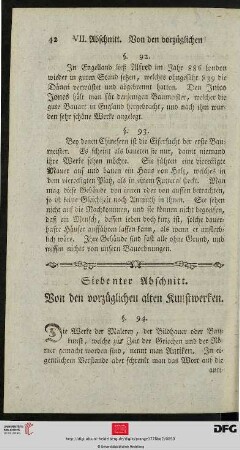 42 VII. Abschnitt. Von den vorzüglichen
§. 92.
In Engelland ließ Alfred im Jahr 886 London
wieder in guten Stand setzen, welches ohngefähr 839 die
Dänen verwüstet und abgebrannt hatten. Den Inico
Jones hält man für denjenigen Baumeister, welcher die
gute Bauart in England hergebracht, und nach ihm wur
den sehr schöne Werke angelegt.
§. 93.
Bey denen Chinesern ist die Eifersucht der erste Bau
meister. Es scheint als baueten sie nur, damit niemand
ihre Werke sehen möchte. Sie führen eine viereckigte
Mauer auf und bauen ein Haus von Holz, welches in
dem viereckigten Platz, als in einem Futteral steckt. Man
mag diese Gebäude von innen oder von aussen betrachten,
so ist keine Gleichheit noch Anmuth in ihnen. Sie sehen
nicht auf die Nachkommen, und sie können nicht begreifen,
daß ein Mensch, dessen leben doch kurz ist, solche dauer-
hafte Häuser aufführen lassen will, als wann er unsterb-
lich wäre. Ihre Gebäude sind fast alle ohne Grund, und
reissen nichts zur Bewunderung.
Siebenter Abschnitt.
Von den vorzüglichen alten Kunstwerken.
§. 94.
Die Werke der Malerey, der Bildhauer oder Bau
kunst, welche zur Zeit der Griechen und der Rö
mer gemacht worden sind, nennt man Antiken. Im ei
gentlichen Verstande aber schränkt man das Wort auf die